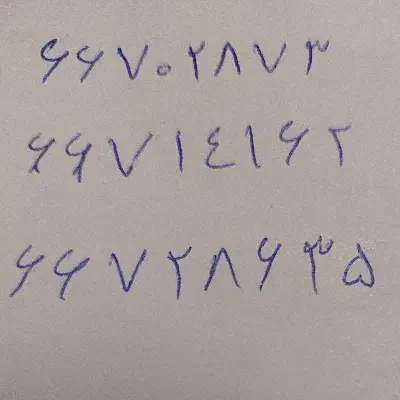 ۶۶۷۰۲۸۷۳
۶۶۷۱۴۱۶۲
۶۶۷۲۸۶۳۵